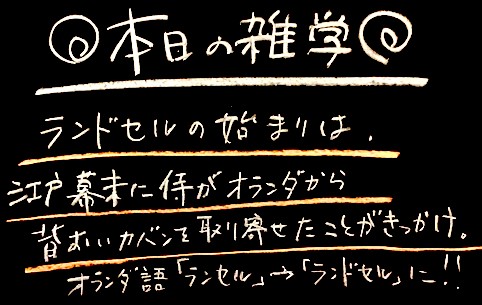 本日の雑学
ランドセルの始まりは、
江戸幕末に侍がオランダから
背おいカバンを取り寄せたことがきっかけ。
オランダ語「ランセル」→「ランドセル」に!!